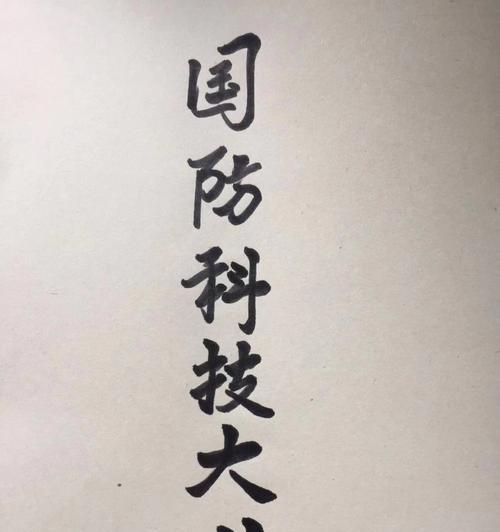 国防科技大